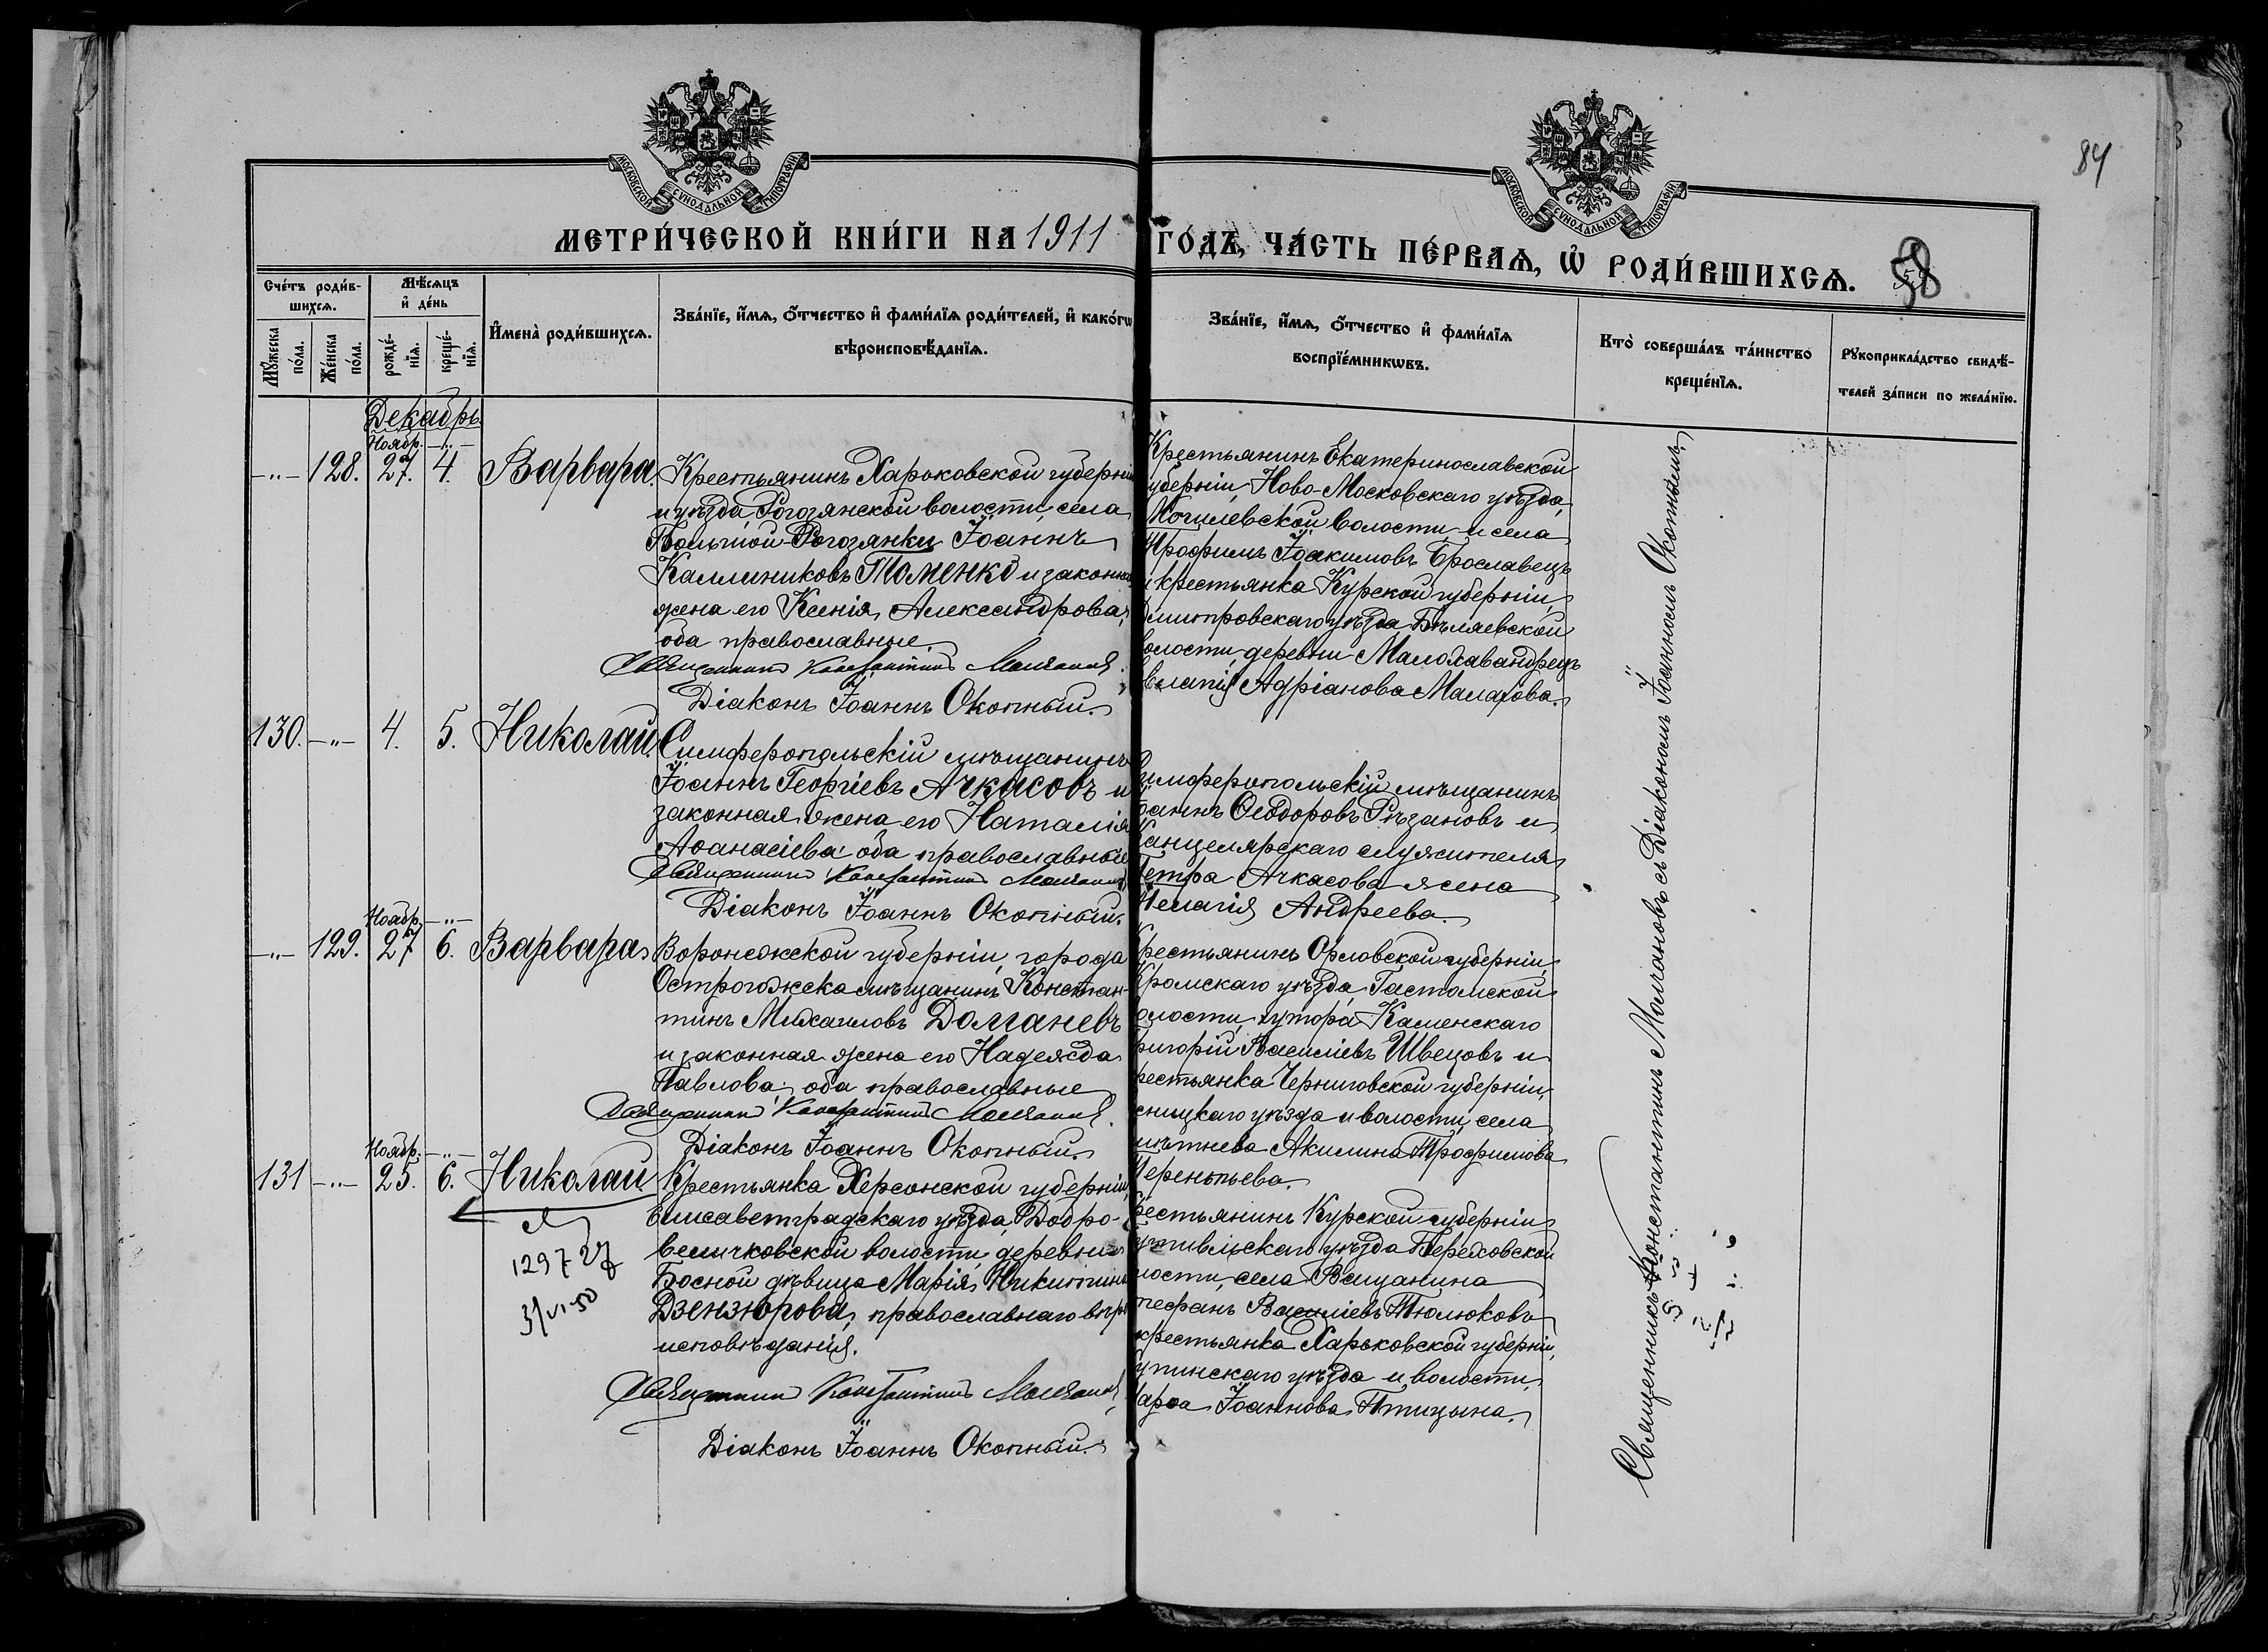 84
МОСКОВСКОЙ СѴНОДАЛЬНОЙ ТИПОГРАФІИ
МОСКОВСКОЙ СѴНОДАЛЬНОЙ ТИПОГРАФІИ
МЕТРИ́ЧЕСКОЙ КНИ́ГИ НА 1911 ГО́ДЪ, ЧА́СТЬ ПЕ́РВАѦ, Ѡ҆ РОДИ́ВШИХСѦ. 58
Сче́тъ роди́в-
шихсѧ.
Мꙋ́жеска
по́ла.
Же́нска
по́ла.
Мѣ́сѧцъ
и҆ де́нь
рожде́-
нїѧ.
креще́-
нїѧ.
И҆мена̀ роди́вшихсѧ.
Зва́нїе, и҆́мѧ, ѻ҆́тчество и҆ фами́лїѧ роди́телей, и҆ како́гѡ
вѣроисповѣ́данїѧ.
Зва́нїе, и҆́мѧ, ѻ҆́тчество и҆ фами́лїѧ
воспрїе́мникѡвъ.
Кто̀ соверша́лъ та́инство
креще́нїѧ.
Рꙋкоприкла́дство свидѣ́-
телей за́писи по жела́нїю.
Декабрь
Ноябр. -"-
-"- 128. 27. 4. Варвара.
Крестьянинъ Харьковской губерніи
и уѣзда, Рогозянской волости, села
Большой-Рогозянки Іоаннъ
Каллиниковъ Томенко и законная
жена его Ксенія Александрова,
оба православные.
Священникъ Константинъ Молчановъ.
Діаконъ Іоаннъ Окопный.
Крестьянинъ Екатеринославской
губерніи, Ново-Московскаго уѣзда,
Могилевской волости и села
Трофимъ Іоакимовъ Брославецъ
и крестьянка Курской губерніи,
Дмитровскаго уѣзда Бѣляевской
волости, деревни
Адріанова Малахова.
130. -"- 4. 5. Николай.
Симферопольскій мѣщанинъ
Іоаннъ Георгіевъ Ачкасовъ и
законная жена его Наталія
Аѳанасіева: оба православные
Священникъ Константинъ Молчановъ
Діаконъ Іоаннъ Окопный.
Симферопольскій мѣщанинъ
Іоаннъ Ѳеодоровъ Рѣзановъ и
Канцелярскаго служителя
Петра Ачкасова жена
Пелагія Андреева.
Ноябр. -"-
-"- 129. 27 6. Варвара
Воронежской губерніи, города
Острогожска мѣщанинъ Констан-
тинъ Михаиловъ Долганевъ
и законная жена его Надежда
Павлова; оба православные
Священникъ Константинъ Молчановъ.
Діаконъ Іоаннъ Окопный.
Крестьянинъ Орловской губерніи,
Кромскаго уѣзда, Гастомской
волости, хутора Каменскаго
Григорій Василіевъ Швецовъ и
крестьянка Черниговской губерніи,
уѣзда и волости, села
Акилина Трофимова
Терентьева.
Ноябр. -"-
131 -"- 25. 6. Николай
129727
3/VI-50
Крестьянка Херсонской губерніи,
Елисаветградскаго уѣзда, Добро-
величковской волости, деревни
Босной дѣвица Марія Никитина
Дзензюрова, православнаго вѣро-
исповѣданія.
Священникъ Константинъ Молчановъ,
Діаконъ Іоаннъ Окопный.
Крестьянинъ Курской губерніи
Путивльскаго уѣзда Береховской
волости, села Вощанина
Стефанъ Василіевъ Тюлюковъ
и крестьянка Харьковской губерніи,
Купинскаго уѣзда и волости,
Марѳа Іоаннова Птицына.
Священникъ Константинъ Молчановъ съ Діакономъ Іоанномъ Окопнымъ